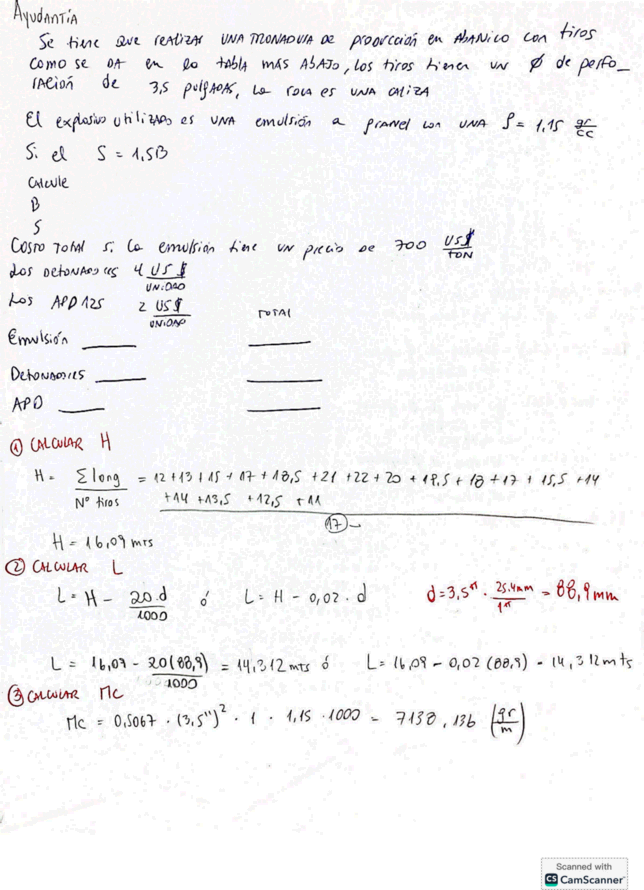 Ayudantía
Se tiene que realizar una tronadura de producción en abanico con tiros
como se da en la tabla más abajo, los tiros tienen un Ø de perfo_
ración de 3,5 pulgadas, la roca es una caliza
El explosivo utilizado es una emulsión a granel con una ρ = 1,15 gr/cc
Si el S = 1,5B
Calcule
B
S
Costo total si la emulsión tiene un precio de 700 US$/TON
Los detonadores 4 US$/UNIDAD
Los APD 125 2 US$/UNIDAD
TOTAL
Emulsión ____ ____
Detonadores ____ ____
APD ____ ____
① CALCULAR H
H = Σ long / N° tiros = 12+13+15+17+18,5+21+22+20+19,5+18+17+15,5+14
+14+13,5+12,5+11
17
H = 16,09 mts
② CALCULAR L
L = H - 20.d/1000 ó L = H - 0,02 · d d = 3,5" · 25.4mm/1" = 88,9mm
L = 16,09 - 20(88,9)/1000 = 14,312 mts ó L = 16,09 - 0,02 (88,9) = 14,312 mts
③ CALCULAR Mc
Mc = 0,5067 · (3,5")² · 1 · 1,15 · 1000 = 7138,136 [gr/m]
Scanned with
CS CamScanner